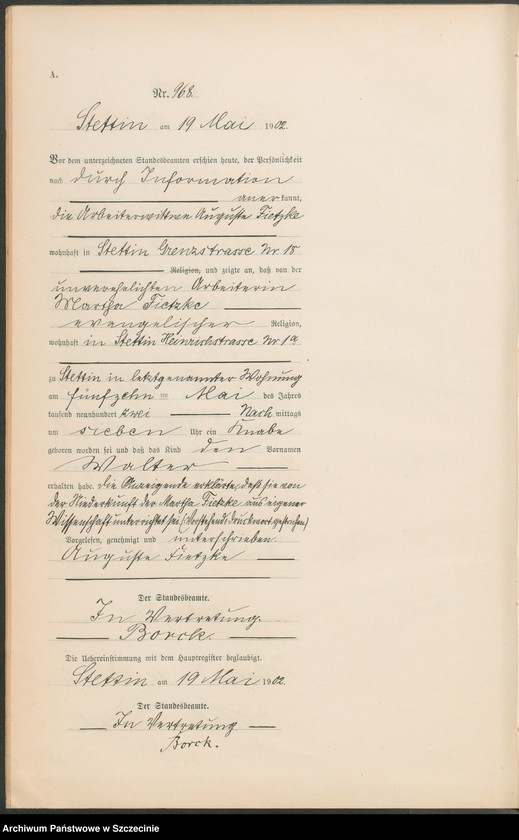 A.
Nr. 968.
Stettin am 19 Mai 1902.
Vor dem unterzeichneten Standesbeamten erschien heute, der Persönlichkeit
nach durch Information
anerkannt,
die Arbeiterwittwe Auguste Fietzke
wohnhaft in Stettin Grenzstrasse Nr 18
Religion, und zeigte an, daß von der
unverehelichten Arbeiterin
Martha Fietzke
evangelischer Religion,
wohnhaft in Stettin Heinrichstrasse Nr 1a
zu Stettin in letztgenannter Wohnung
am fünfzehn ten Mai des Jahres
tausend neunhundert zwei Nachmittags
um sieben Uhr ein Knabe
geboren worden sei und daß das Kind den Vornamen
Walter
erhalten habe. Die Anzeigende erklärte, daß sie von
der Niederkunft der Martha Fietzke aus eigener
Wissenschaft unterrichtet sei. (Vorstehend 1 Druckwort gestrichen)
Vorgelesen, genehmigt und unterschrieben
Auguste Fietzke
Der Standesbeamte.
In Vertretung.
Borck.
Die Uebereinstimmung mit dem Hauptregister beglaubigt.
Stettin am 19 Mai 1902.
Der Standesbeamte.
In Vertretung
Borck.
Archiwum Państwowe w Szczecinie